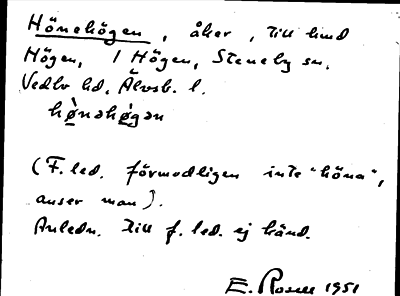 Hönehögen, åker, till hmd
Högen, 1 Högen, Steneby sn.
Vedbo hd, Älvsb. l.
hø̀nəhø̣gən
(F. led. förmodligen inte "höna",
anser man).
Anledn. till f. led. ej känd.
E. Rosell 1951